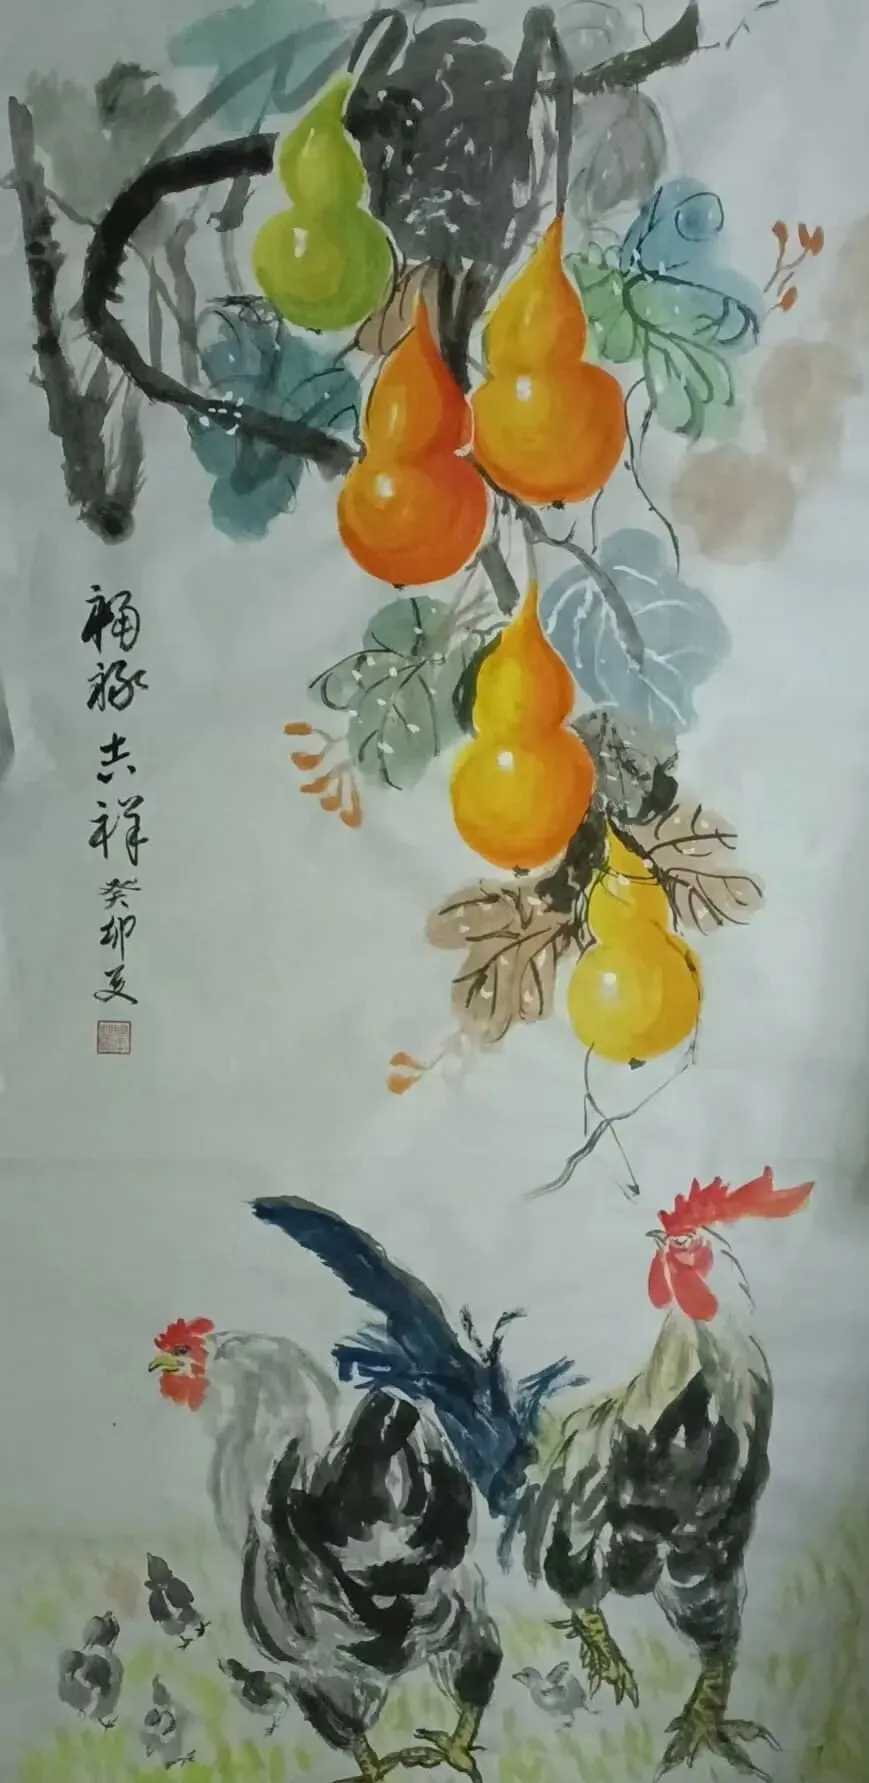 福禄吉祥癸卯夏